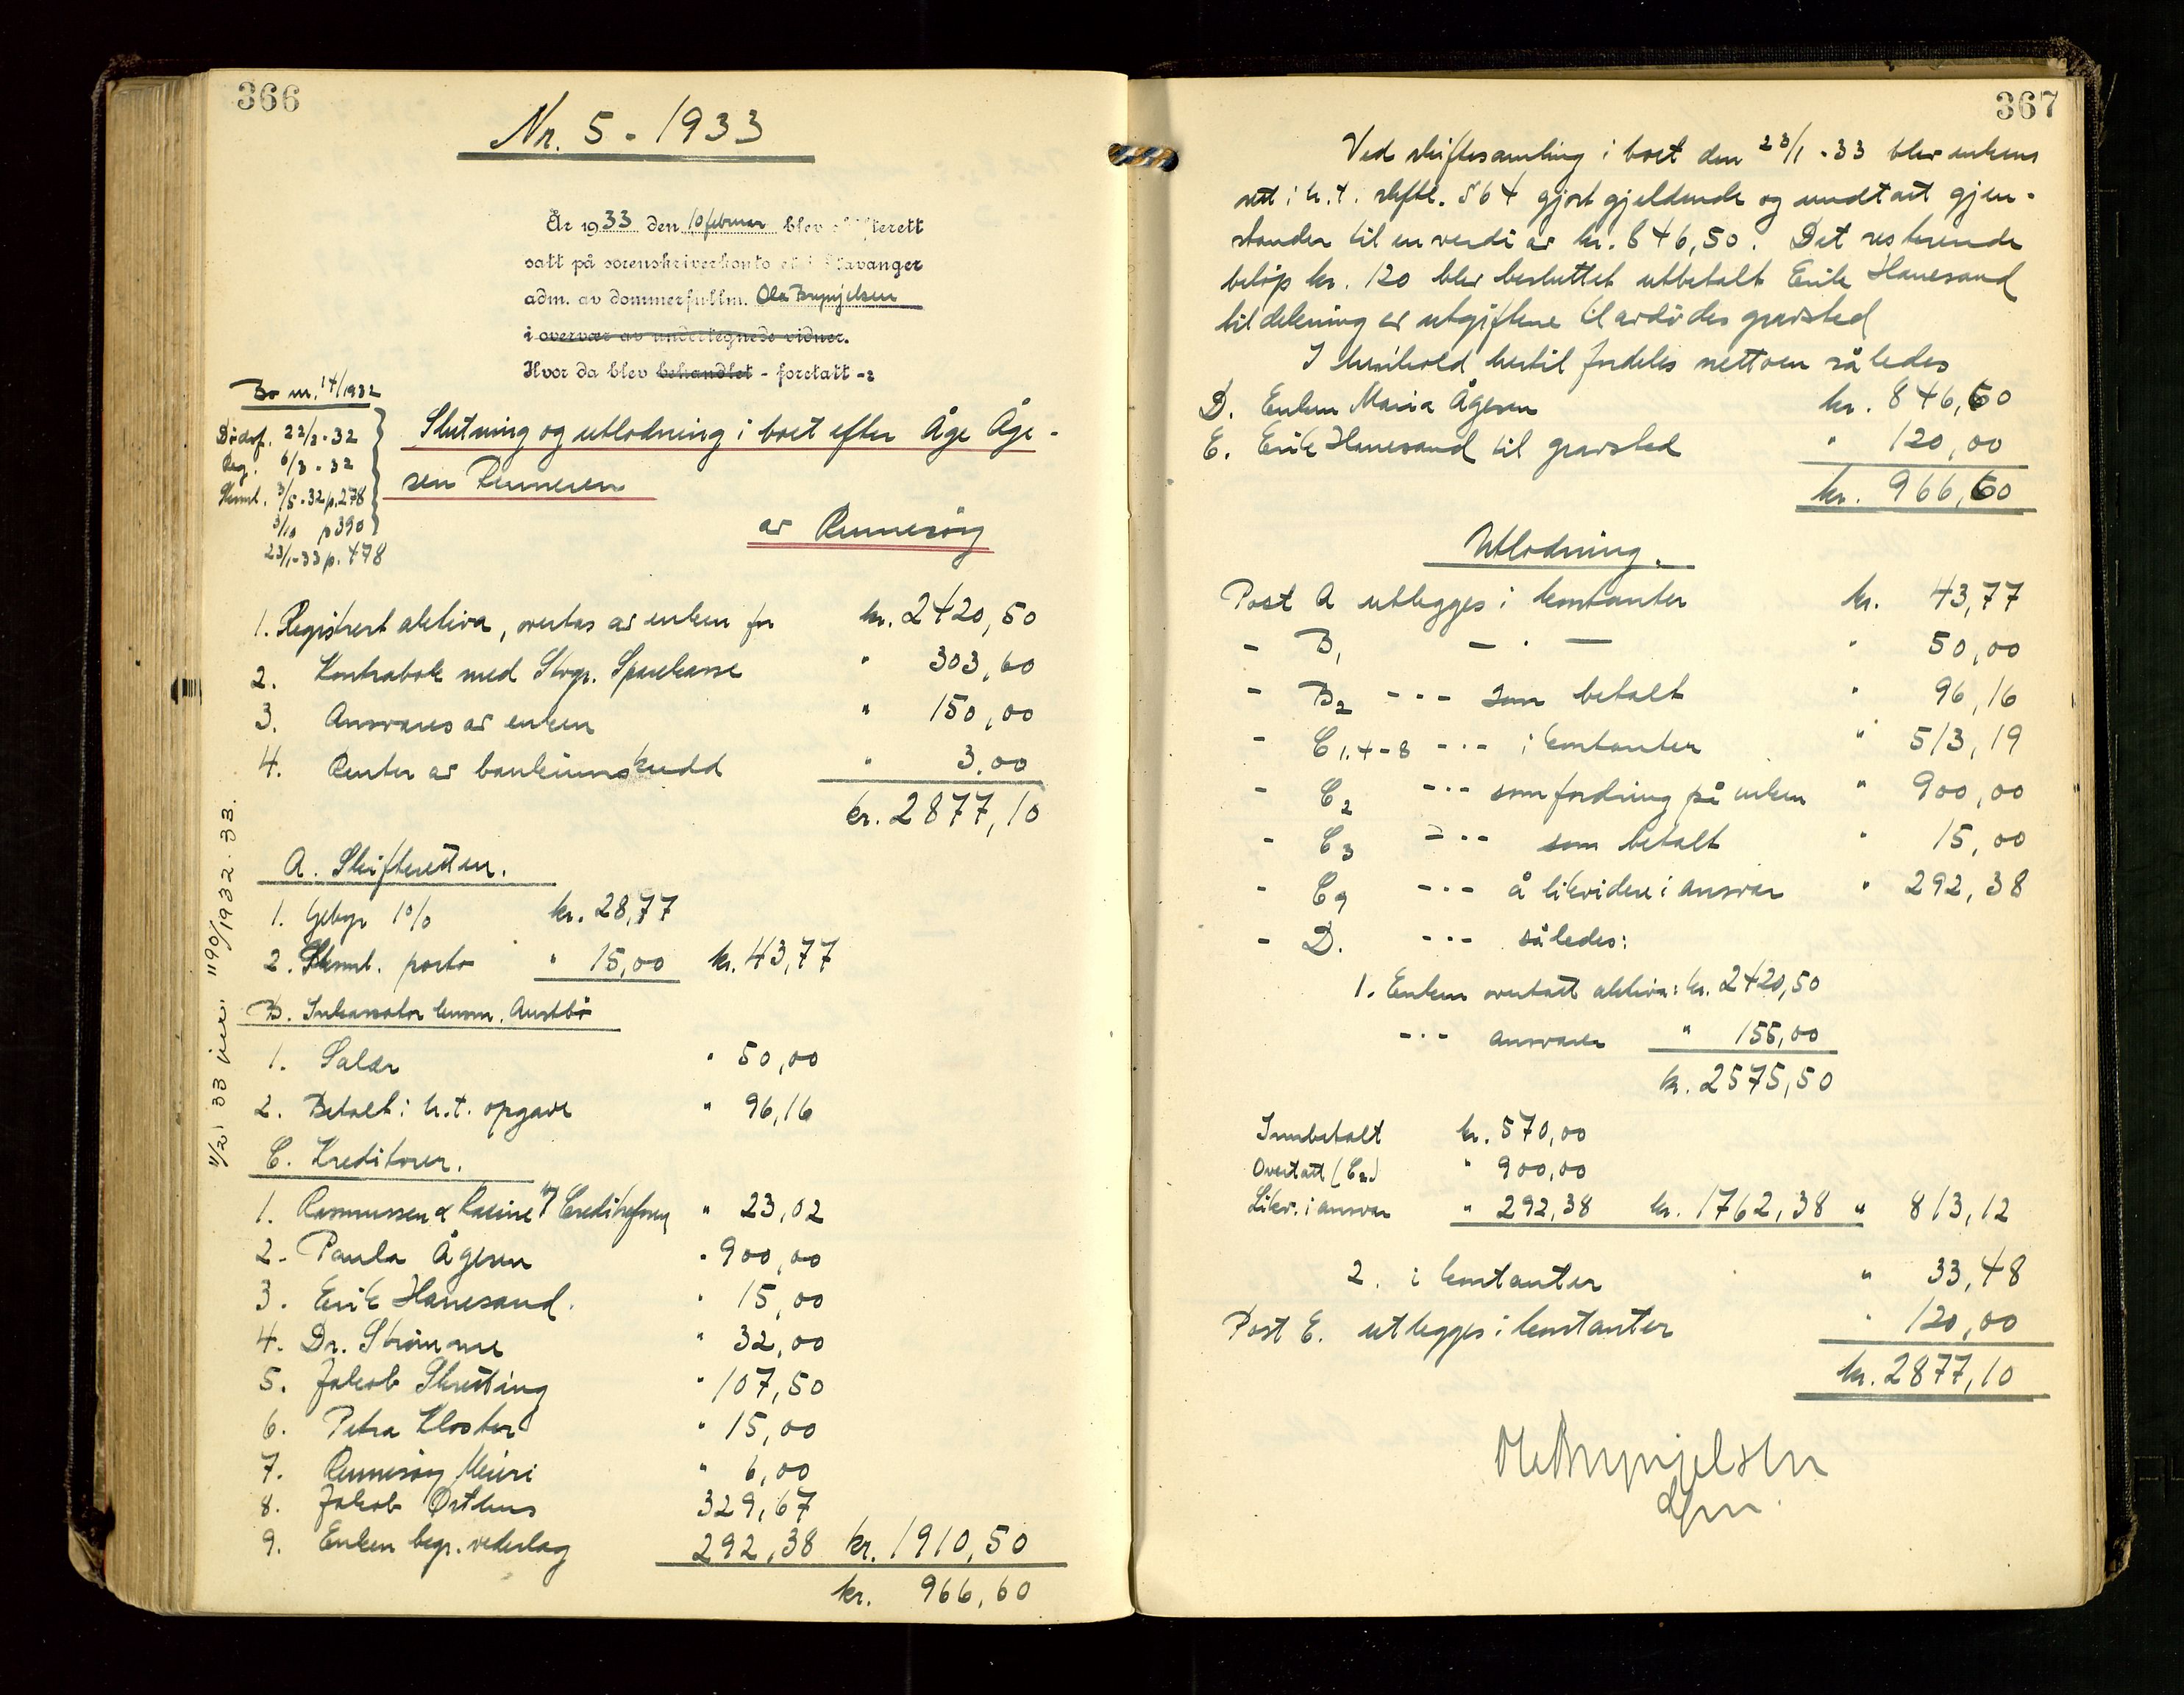 366
Nr. 5 - 1933
År 1933 den 10 februar blev skifterett
satt på sorenskriverkontoret i Stavanger
adm. av dommerfullm. Ole Brynjelsen
i overvær av undertegnede vidner.
Hvor da blev behandlet - foretatt -:
Bo nr. 14/1932
Dødsf. 22/2-32
Reg. 6/3-32
Saml. 3/5-32 p.278
3/10 p390
23/1-33 p. 478
Slutning og utlodning i boet efter Åge Åge-
sen Renneren
av Rennesøy
1. Registrert aktiva, overtas av enken for kr. 2420,50
2. Kontrabok med Stvgr. Sparekasse " 303,60
3. Ansvares av enken " 150,00
4. Renter av bankinnskudd " 3.00
kr. 2877,10
A. Skifteretten.
1. Gebyr 1% kr. 28,77
2. Skml. porto " 15,00 kr. 43,77
B. Inkassator lensm. Austbø
1. Salær " 50,00
2. Betalt i h.t. opgave " 96,16
C. Kreditorer.
1. Rasmussen & Racine v/ Creditreform " 23,02
2. Paula Ågesen " 900,00
3. Erik Hanesand. " 15,00
4. Dr. Strømme " 32,00
5. Jakob Skretting " 107,50
6. Petra Kloster " 15,00
7. Rennesøy Meieri " 6,00
8. Jakob Østhus 329,67
9. Enken begr. vederlag 292,38 kr. 1910,50
kr. 966,60
11/2 33 1190/1932-33.
367
Ved skiftesamling i boet den 23/1-33 blev enkens
rett i h.t. skiftel. § 64 gjort gjeldende og undtatt gjen-
stander til en verdi av kr. 846,50. Det resterende
beløp kr. 120 blev besluttet utbetalt Erik Hanesand
til dekning av utgiftene til avdødes gravsted
I henhold hertil fordeles nettoen således
D. Enken Maria Ågesen kr. 846,60
E. Erik Hanesand til gravsted " 120,00
kr. 966,60
Utlodning.
Post A utlegges i kontanter kr. 43,77
- B1 - " - " 50,00
- B2 - " - som betalt " 96,16
- C1, 4-8 - " - i kontanter " 513,19
- C2 - " - som fordring på enken " 900,00
- C3 - " - som betalt " 15,00
- C9 - " - å likvidere i ansvar " 292,38
- D. - " - således:
1. Enken overtatt aktiva: kr. 2420,50
- " - ansvarer " 155,00
kr. 2575,50
Innbetalt kr. 570,00
Overtatt (C2) " 900,00
Likv. i ansvar " 292,38 kr. 1762,38 " 813,12
2. i kontanter " 33,48
Post E. utlegges i kontanter " 120,00
kr. 2877,10
Ole Brynjelsen
dfm.